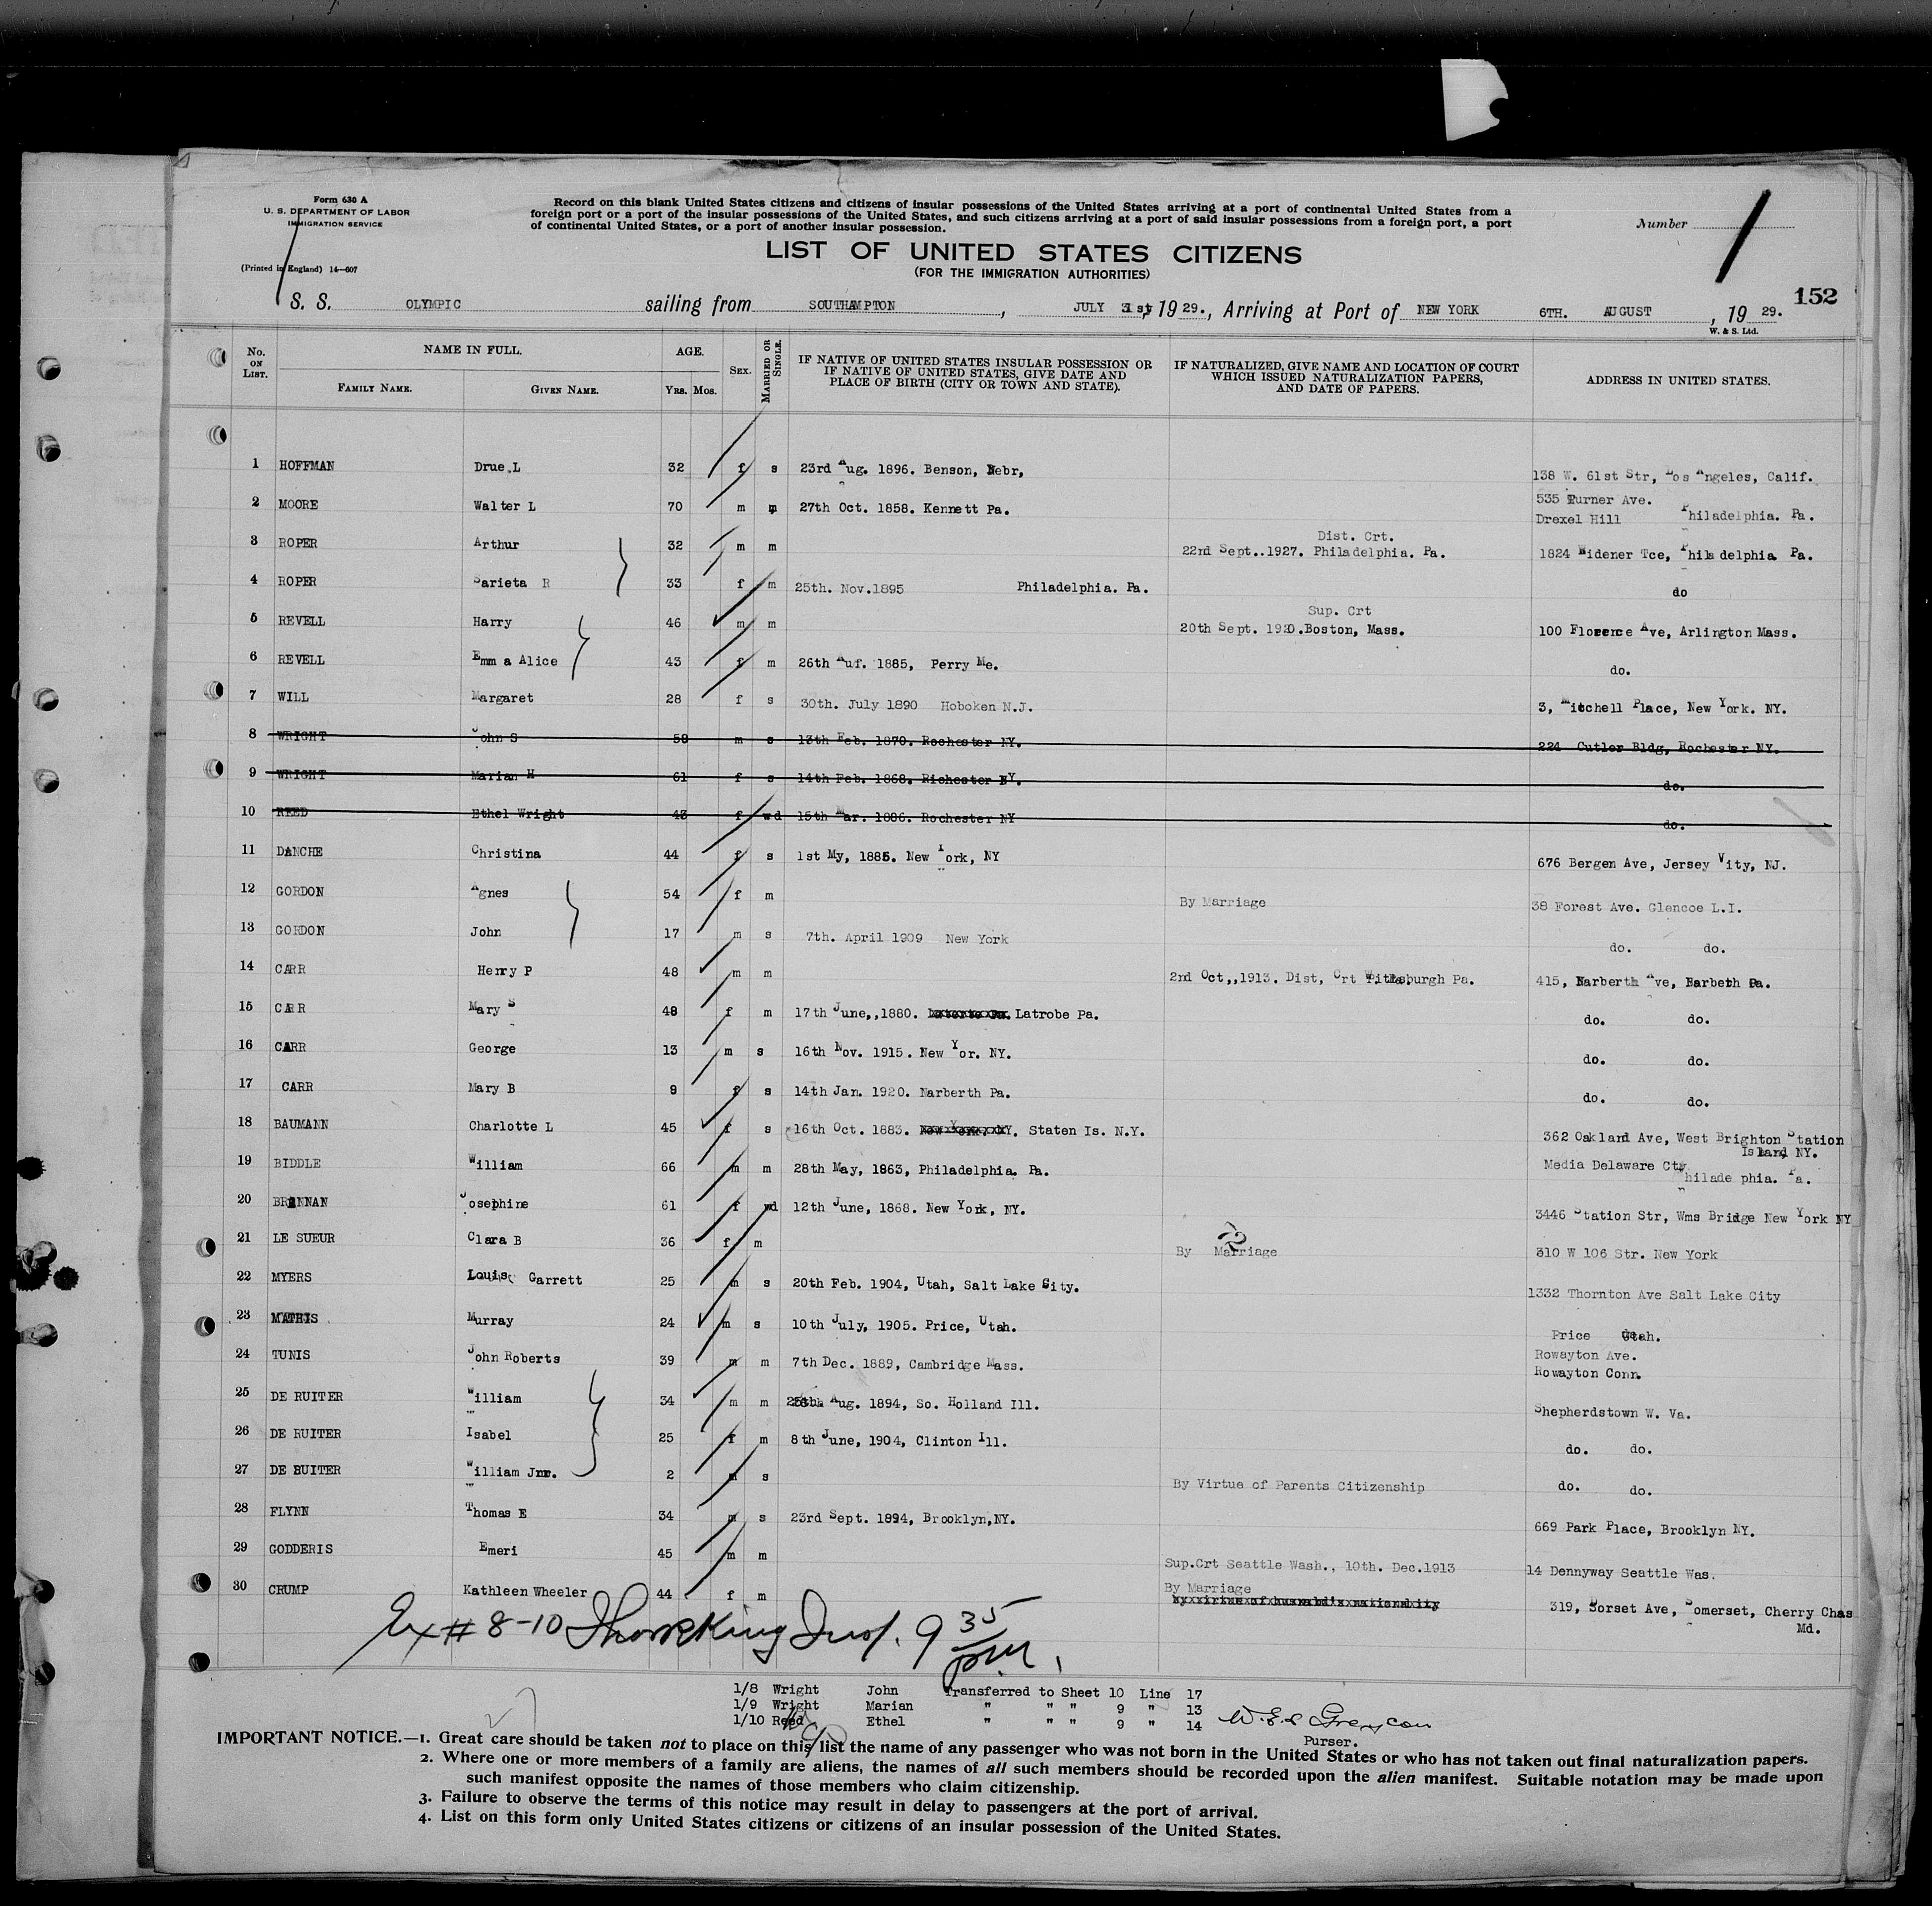 Form 630 A
U. S. DEPARTMENT OF LABOR
IMMIGRATION SERVICE
(Printed in England) 14—607
Record on this blank United States citizens and citizens of insular possessions of the United States arriving at a port of continental United States from a
foreign port or a port of the insular possessions of the United States, and such citizens arriving at a port of said insular possessions from a foreign port, a port
of continental United States, or a port of another insular possession.
Number
LIST OF UNITED STATES CITIZENS
(FOR THE IMMIGRATION AUTHORITIES)
152
S. S. OLYMPIC sailing from SOUTHAMPTON, JULY 31st, 1929., Arriving at Port of NEW YORK 6TH. AUGUST, 1929.
W. & S. Ltd.
No. ON LIST. NAME IN FULL. FAMILY NAME. GIVEN NAME. AGE. YRS. MOS. SEX. MARRIED OR SINGLE. IF NATIVE OF UNITED STATES INSULAR POSSESSION OR IF NATIVE OF UNITED STATES, GIVE DATE AND PLACE OF BIRTH (CITY OR TOWN AND STATE). IF NATURALIZED, GIVE NAME AND LOCATION OF COURT WHICH ISSUED NATURALIZATION PAPERS, AND DATE OF PAPERS. ADDRESS IN UNITED STATES.
1 HOFFMAN Drue L 32 f s 23rd Aug. 1896. Benson, Nebr, 138 W. 61st Str, Los Angeles, Calif.
2 MOORE Walter L 70 m m 27th Oct. 1858. Kennett Pa. 535 Turner Ave. Drexel Hill Philadelphia. Pa.
3 ROPER Arthur 32 m m 22nd Sept..1927. Dist. Crt. Philadelphia. Pa. 1824 Widener Tce, Philadelphia Pa.
4 ROPER Sarieta R 33 f m 25th. Nov.1895 Philadelphia. Pa. do
5 REVELL Harry 46 m m 20th Sept. 1920. Sup. Crt Boston, Mass. 100 Florence Ave, Arlington Mass.
6 REVELL Emma Alice 43 f m 26th Auf. 1885, Perry Me. do.
7 WILL Margaret 28 f s 30th. July 1890 Hoboken N.J. 3, Mitchell Place, New York. NY.
8 WRIGHT John S 58 m s 13th Feb. 1870. Rochester NY. 224 Cutler Bldg, Rochester NY.
9 WRIGHT Marian H 61 f s 14th Feb. 1868. Richester NY. do.
10 REED Ethel Wright 43 f wd 15th Mar. 1886. Rochester NY do.
11 DANCHE Christina 44 f s 1st My, 1885. New York, NY 676 Bergen Ave, Jersey Vity, NJ.
12 GORDON Agnes 54 f m By Marriage 38 Forest Ave. Glencoe L.I.
13 GORDON John 17 m s 7th. April 1909 New York do. do.
14 CARR Henry P 48 m m 2nd Oct,,1913. Dist, Crt Pittsburgh Pa. 415, Narberth Ave, Narbeth Pa.
15 CARR Mary S 48 f m 17th June,,1880. Latrobe Pa. do. do.
16 CARR George 13 m s 16th Nov. 1915. New Yor. NY. do. do.
17 CARR Mary B 9 f s 14th Jan. 1920. Narberth Pa. do. do.
18 BAUMANN Charlotte L 45 f s 16th Oct. 1883. Staten Is. N.Y. 362 Oakland Ave, West Brighton Station Island, NY.
19 BIDDLE William 66 m m 28th May, 1863, Philadelphia. Pa. Media Delaware Cty Philade phia. Pa.
20 BRENNAN Josephine 61 f wd 12th June, 1868. New York, NY. 3446 Station Str, Wms Bridge New York NY
21 LE SUEUR Clara B 36 f m By Marriage 310 W 106 Str. New York
22 MYERS Louis Garrett 25 m s 20th Feb. 1904, Utah, Salt Lake City. 1332 Thornton Ave Salt Lake City
23 MATHIS Murray 24 m s 10th July, 1905. Price, Utah. Price Utah.
24 TUNIS John Roberts 39 m m 7th Dec. 1889, Cambridge Mass. Rowayton Ave. Rowayton Conn.
25 DE RUITER William 34 m m Aug. 1894, So. Holland Ill. Shepherdstown W. Va.
26 DE RUITER Isabel 25 f m 8th June, 1904, Clinton Ill. do. do.
27 DE RUITER William Jnr. 2 m s By Virtue of Parents Citizenship do. do.
28 FLYNN Thomas E 34 m s 23rd Sept. 1894, Brooklyn,NY. 669 Park Place, Brooklyn NY.
29 GODDERIS Emeri 45 m m Sup.Crt Seattle Wash., 10th. Dec.1913 14 Dennyway Seattle Was.
30 CRUMP Kathleen Wheeler 44 f m By Marriage 319, Dorset Ave, Somerset, Cherry Chas Md.
Ex # 8-10 Insp. 9 35 pm.
1/8 Wright John Transferred to Sheet 10 Line 17
1/9 Wright Marian " " " 9 " 13
1/10 Reed Ethel " " " 9 " 14
Purser.
IMPORTANT NOTICE.—1. Great care should be taken not to place on this list the name of any passenger who was not born in the United States or who has not taken out final naturalization papers.
2. Where one or more members of a family are aliens, the names of all such members should be recorded upon the alien manifest. Suitable notation may be made upon
such manifest opposite the names of those members who claim citizenship.
3. Failure to observe the terms of this notice may result in delay to passengers at the port of arrival.
4. List on this form only United States citizens or citizens of an insular possession of the United States.